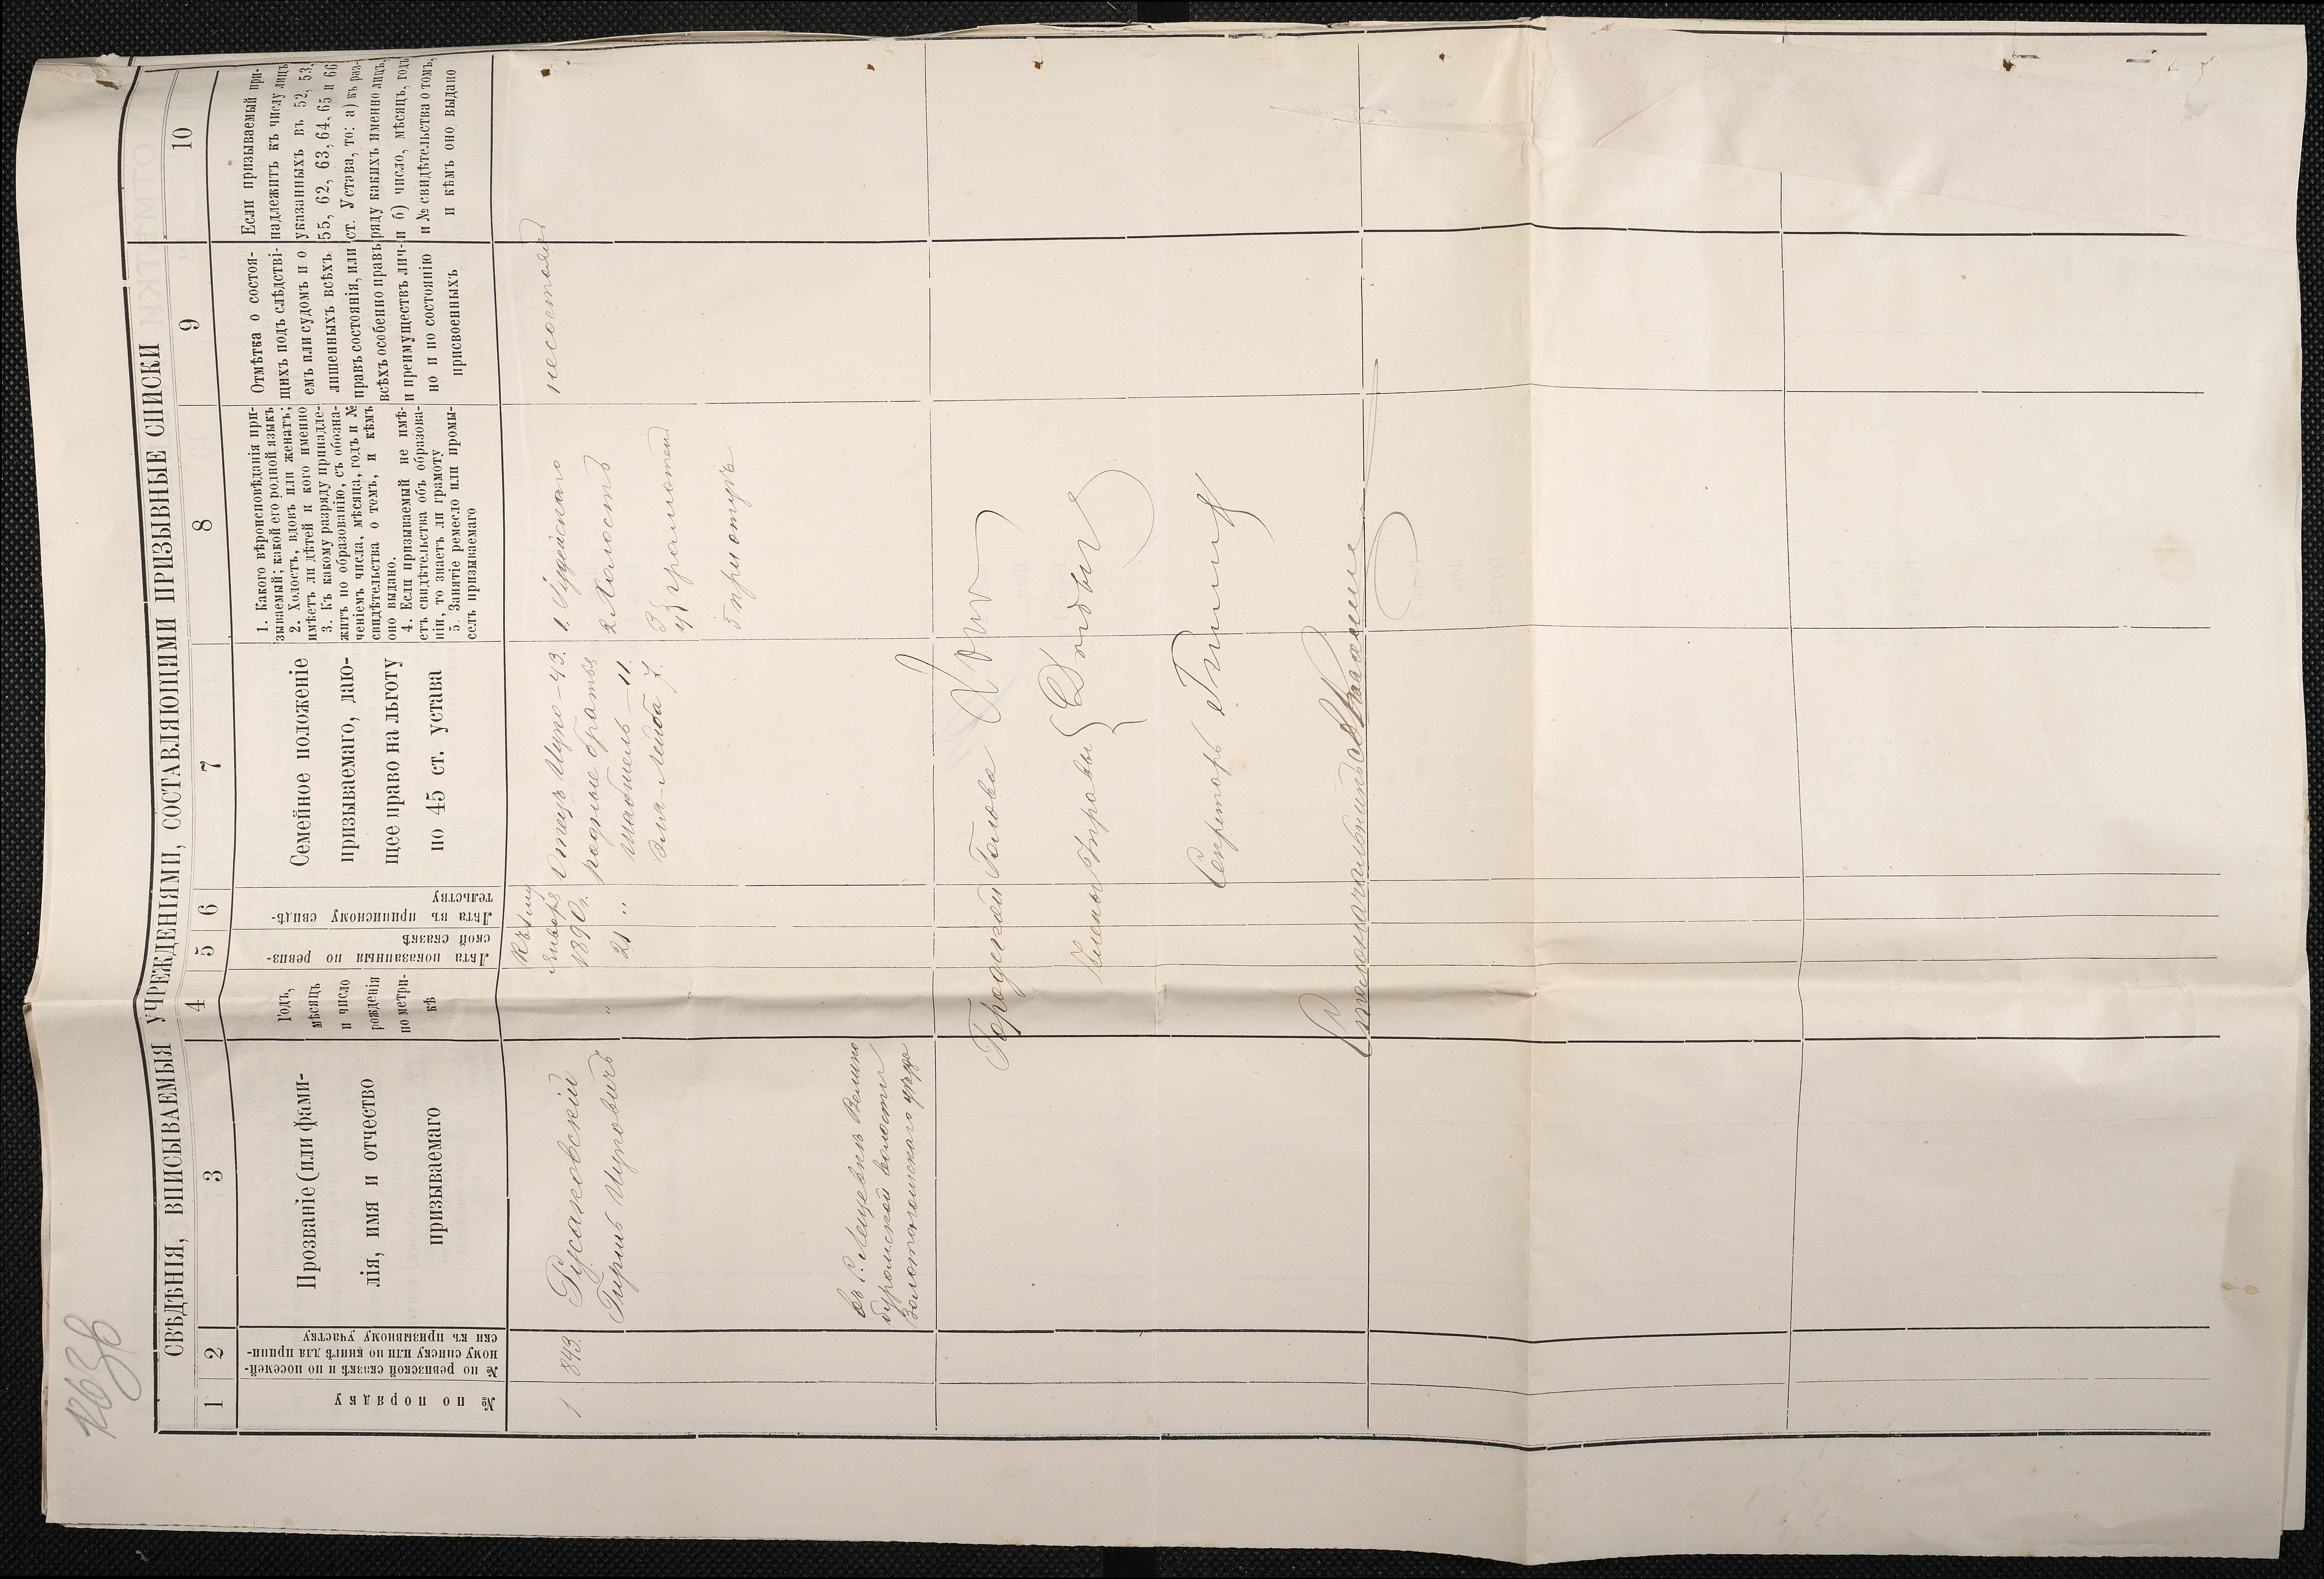 СВѢДѢНІЯ, ВПИСЫВАЕМЫЯ УЧРЕЖДЕНІЯМИ, СОСТАВЛЯЮЩИМИ ПРИЗЫВНЫЕ СПИСКИ
1
2
3
4
5
6
7
8
9
10
№ по порядку
№ по ревизской сказкѣ и по посемей-
ному списку или по книгѣ для припи-
ски къ призывному участку
Прозваніе (или фами-
лія, имя и отчество
призываемаго
Годъ,
мѣсяцъ
и число
рожденія
по метри-
кѣ
Лѣта показанныя по ревиз-
ской сказкѣ
Лѣта въ приписному свидѣ-
тельству
Семейное положеніе
призываемаго, даю-
щее право на льготу
по 45 ст. устава
1. Какого вѣроисповѣданія при-
зываемый; какой его родной языкъ
2. Холостъ, вдовъ или женатъ;
имѣетъ ли дѣтей и кого именно
3. Къ какому разряду принадле-
житъ по образованію, съ обозна-
ченіемъ числа, мѣсяца, годъ и №
свидѣтельства о томъ, и кѣмъ
оно выдано.
4. Если призываемый не имѣ-
етъ свидѣтельства объ образова-
ніи, то знаетъ ли грамоту
5. Занятіе ремесло или промы-
селъ призываемаго
Отмѣтка о состоя-
щихъ подъ слѣдстві-
емъ или судомъ и о
лишенныхъ всѣхъ
правъ состоянія, или
всѣхъ особенно правъ
и преимуществъ лич-
но и по состоянію
присвоенныхъ
Если призываемый при-
надлежитъ къ числу лицъ
указанныхъ въ 52, 53,
55, 62, 63, 64, 65 и 66
ст. Устава, то: а) къ раз-
ряду какихъ именно лицъ,
и б) число, мѣсяцъ, годъ
и № свидѣтельства о томъ,
и кѣмъ оно выдано
1
843
Русаковскій
Гиршъ Ицковичъ
въ С. Лящевкѣ Велико
буромской волости
Золотоношскаго уѣзда
"
Къ 1му
Января
1890 г.
21 "
Отецъ Ицко – 43.
родные братья
– 11.
7.
1. Іудейскаго
2 Холостъ
3
4} грамотен
5
несостоялъ
Городской Голова
Члены Управы {
Секретарь
1263